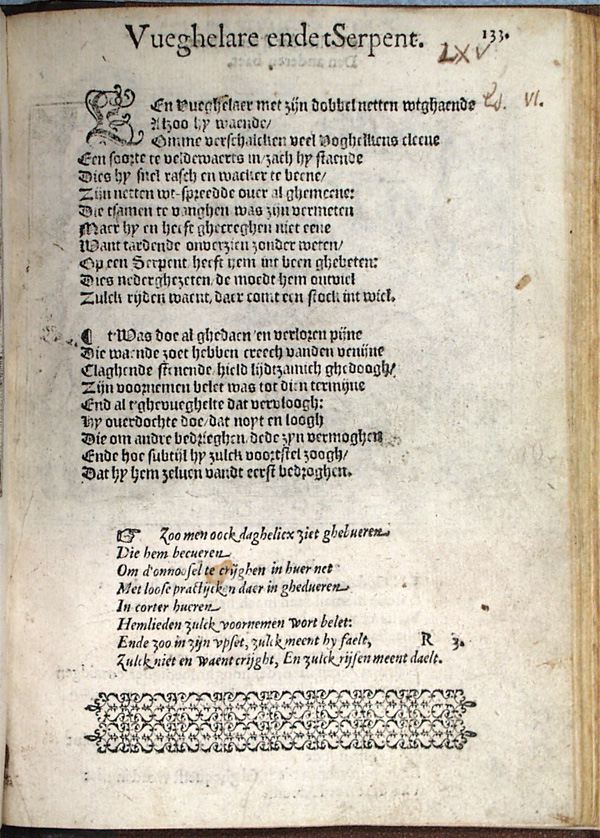 Vueghelare ende tSerpent.
133.
LXV
Es. VI.
EEn Vueghelaer met zijn dobbel netten wtghaende
Alzoo hy waende/
Omme verschalcken veel Voghelkens cleene
Een soorte te veldewaerts in/ zach hy staende
Dies hy snel rasch en wacker te beene/
Zijn netten wt-spreedde ouer al ghemeene:
Die tsamen te vanghen was zijn vermeten
Maer hy en heeft ghecreghen niet eene
Want tardende onverzien zonder weten/
Op een Serpent/ heeft hem int been ghebeten:
Dies nederghezeten/ de moedt hem ontwiel
Zulck rijden waent, daer comt een stock int wiel.
¶ t'Was doe al ghedaen/ en verloren pijne
Die waende zoet hebben creech vanden venijne
Claghende stenende/ hield lijdtzamich ghedoogh/
Zijn voornemen belet was tot dien termijne
End al t'ghevueghelte dat vervloogh:
Hy overdochte doe/ dat noyt en loogh
Die om andre bedrieghen/ dede zyn vermoghen
Ende hoe subtijl hy zulck voortstel zoogh/
Dat hy hem zeluen vandt eerst bedroghen.
☞ Zoo men oock daghelicx ziet ghebueren
Die hem becueren
Om d'onnoosel te crijghen in huer net
Met loose practijcken daer in ghedueren
In corter hueren
Hemlieden zulck voornemen wort belet:
Ende zoo in zijn vpset, zulck meent hy faelt,
R 3.
Zulck niet en waent crijght, En zulck rijsen meent daelt.